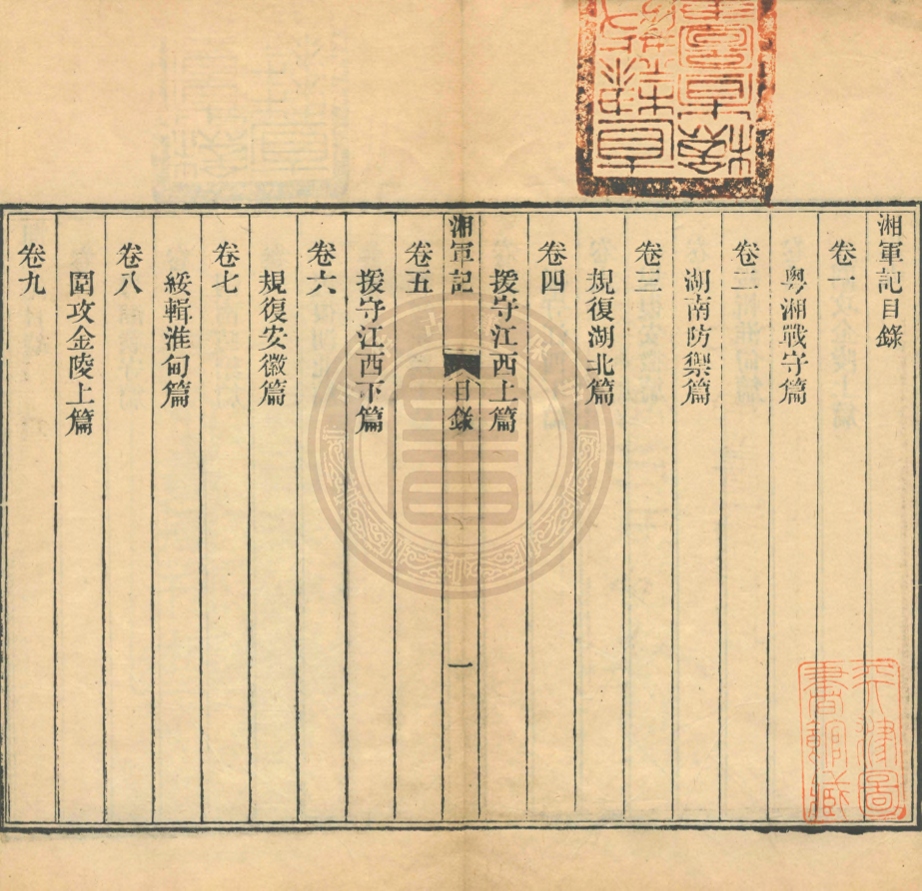 湘軍記目錄
卷一
粵湘戰守篇
卷二
湖南防禦篇
卷三
規復湖北篇
卷四
援守江西上篇
湘軍記 目錄 一
卷五
援守江西下篇
卷六
規復安徽篇
卷七
綏輯淮甸篇
卷八
圍攻金陵上篇
卷九
天津圖
書館藏